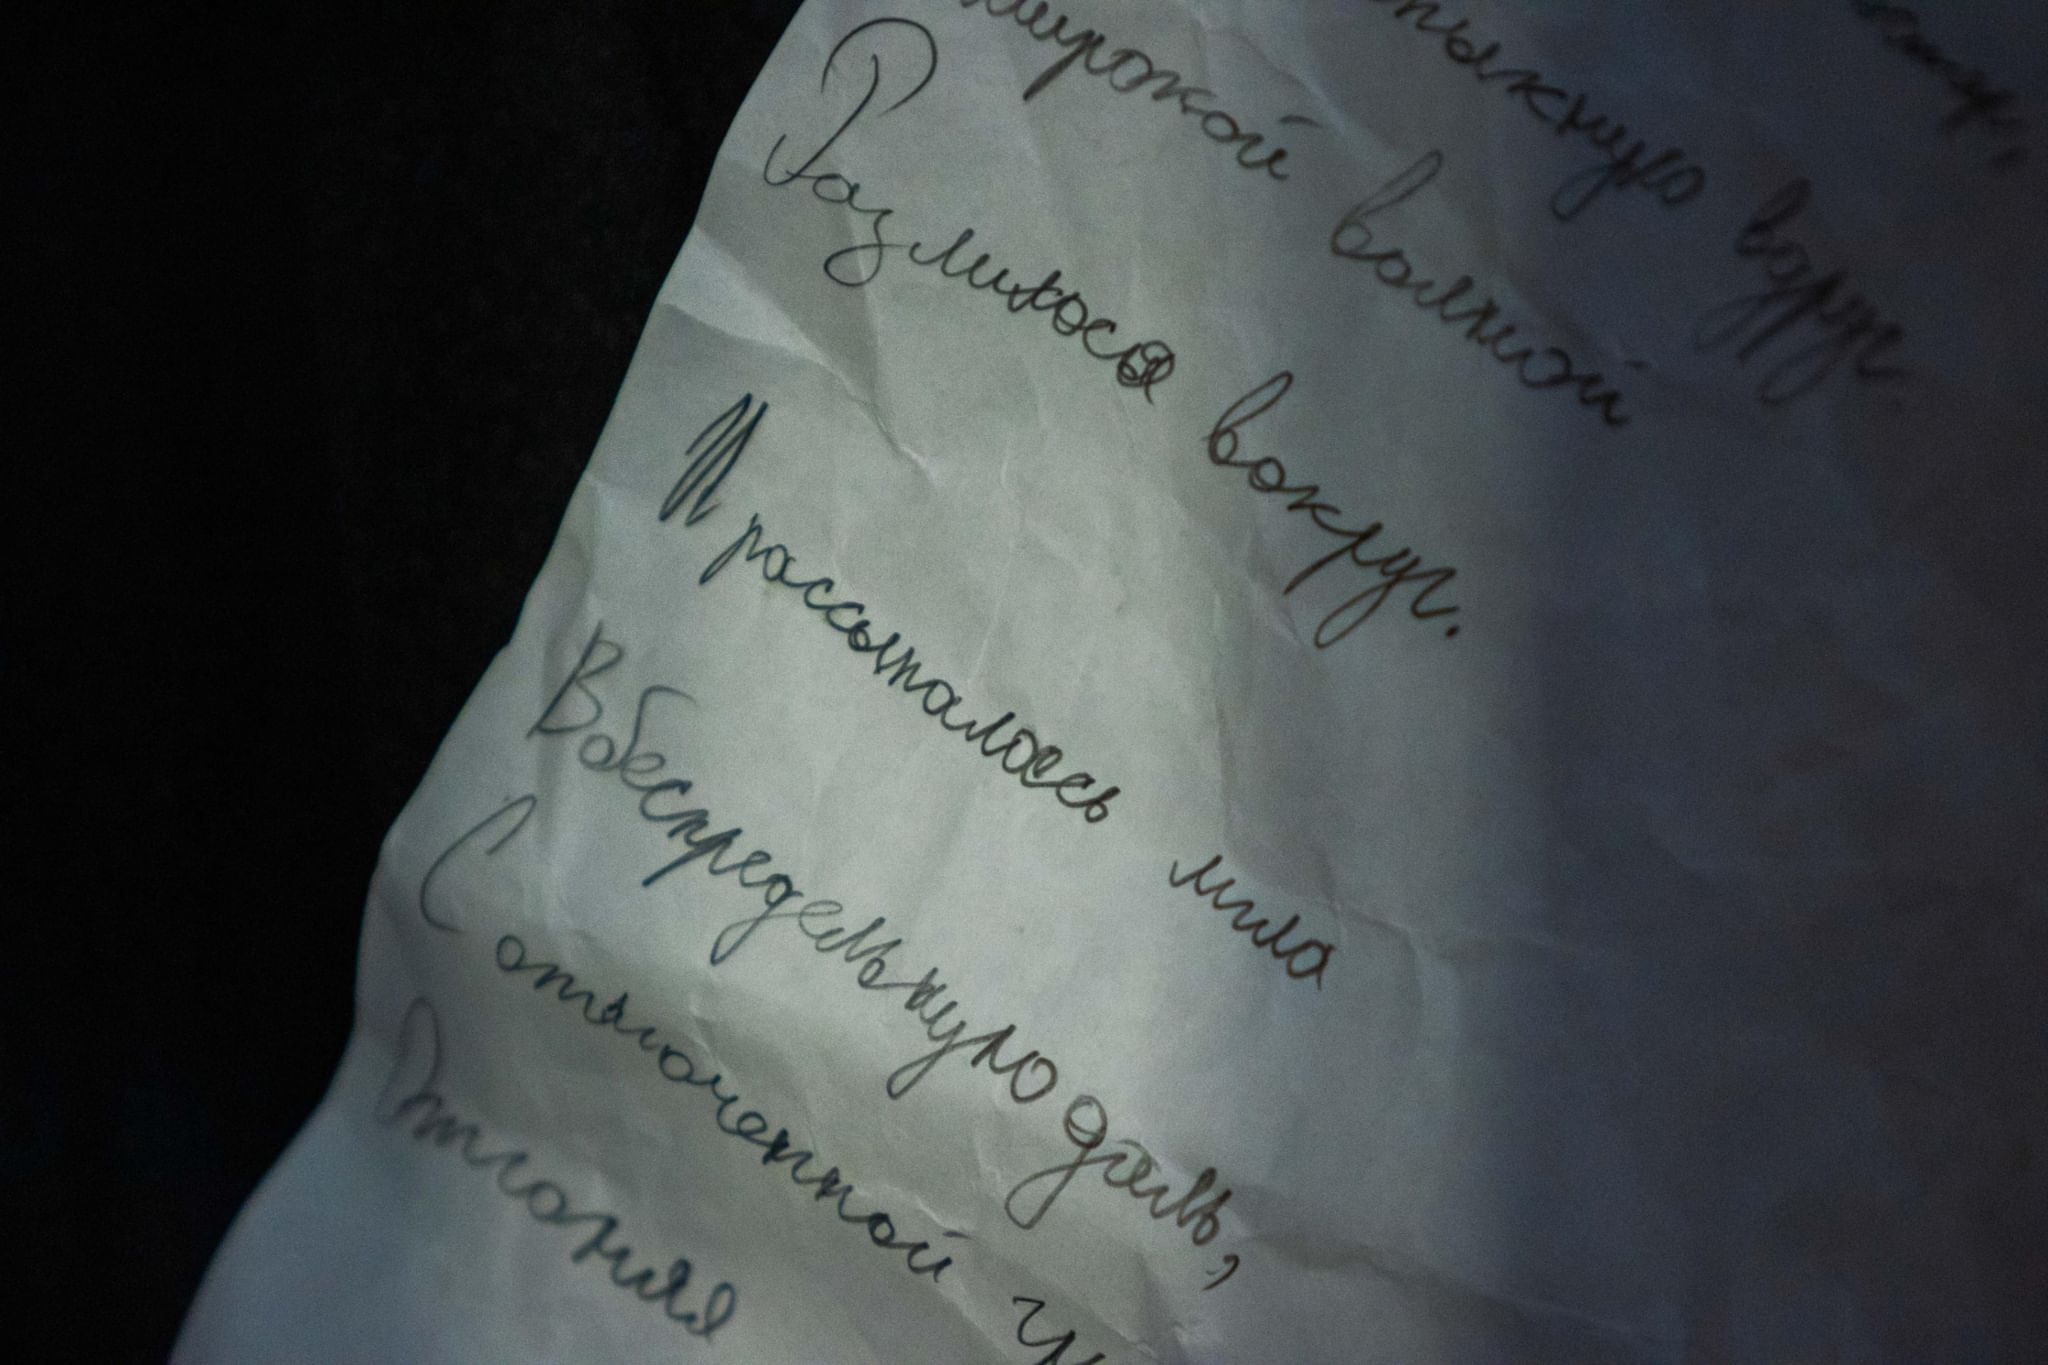 пыхнуло вдруг.
широкой волной
Разлилося вокруг.
И рассыпалось мгла
В беспредельную даль,
С отягоченной
Отгоняя